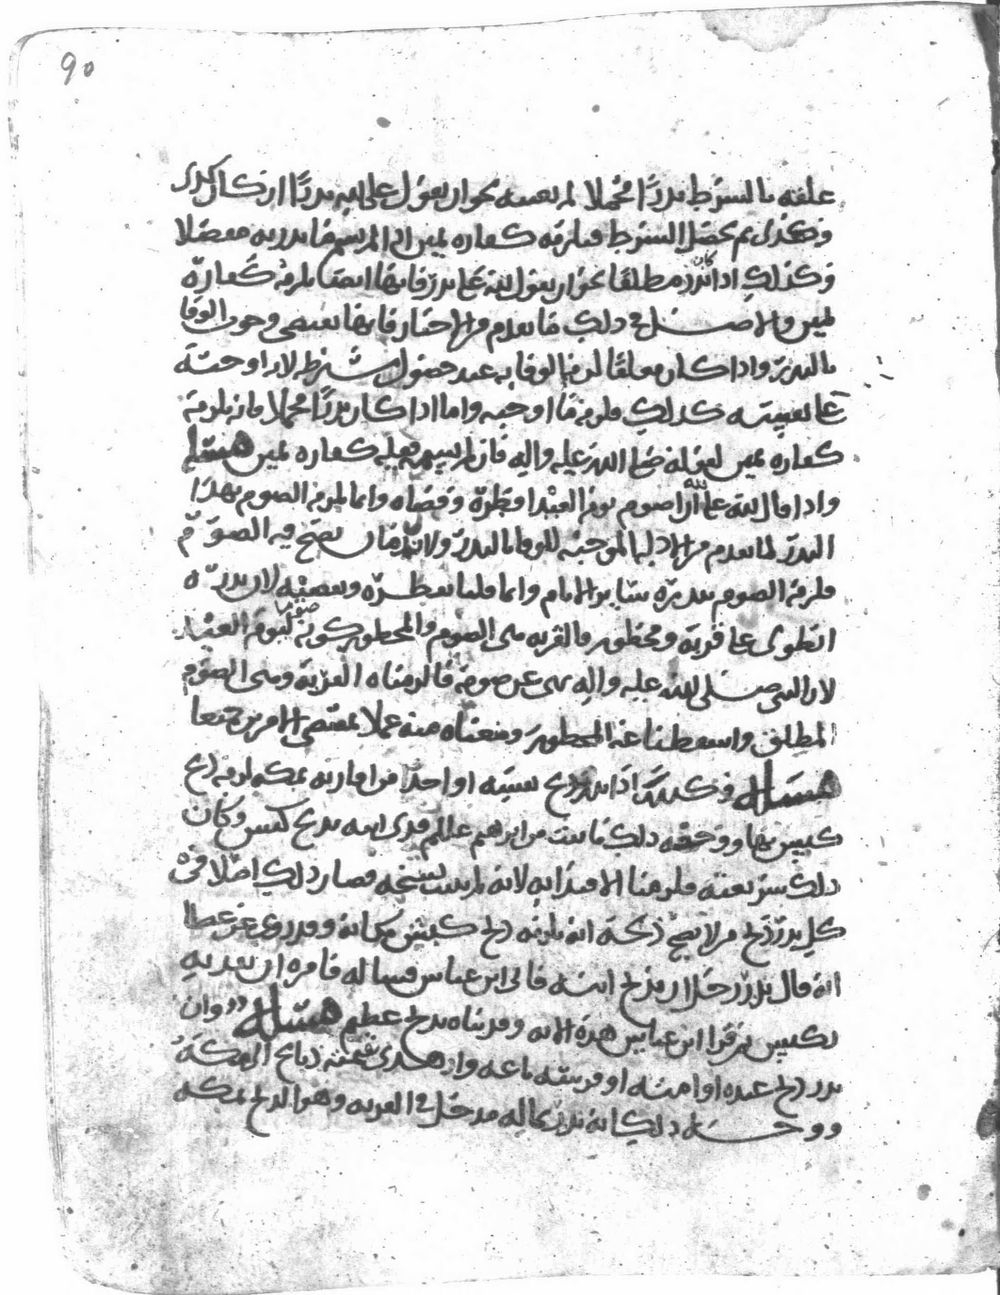 90
علقه بالشرط نذرًا مجملا لم يعينه نحو ان يقول علي لله نذرًا ان كان كذى
وكذى ثم يحصل الشرط فيلزمه كفاره يمين اذا لم يسم ما نذر به مفصلا
وكذلك اذا كان نذره مطلقا نحو ان يقول لله علي نذر فانها ايضا يلزمه كفارة
يمين والاصل في ذلك ما تقدم من الاخبار فانها تقتضى وجوب الوفا
بالنذر واذا كان معلقا لزم الوفا به عند حصول شرطه لانه اوجبه
على نفسه كذلك فلزمه ما اوجبه واما اذا كان نذرًا مجملا فانه يلزمه
كفاره يمين لقوله صلى الله عليه واله فان لم يسمه فعليه كفاره يمين مسئلة
واذا قال لله علي ان اصوم يوم العيد افطره وقضاه وانما لزم الصوم بهذا
النذر لما تقدم من الادلة الموجبه للوفا بالنذر ولانه زمان يصح فيه الصوم
فلزمه الصوم بنذره كسائر الايام وانما قلنا يفطره ويقضيه لان نذره
انطوى على قربة ومحظور فالقربه هى الصوم والمحظور كونه صوما ليوم العيد
لان النبى صلى الله عليه واله نهى عن صومه فالزمناه القربة وهى الصوم
المطلق واسقطنا عنه المحظور ومنعناه منه عملا بمقتضى الامرين جميعا
مسئلة وكذلك اذا نذر ذبح نفسه او احدًا من اقاربه بمكه لزمه ذبح
كبش بها ووجه ذلك ما ثبت من ابراهيم عليلم فدى ابنه بذبح كبش وكان
ذلك شريعته فلزمنا الاقتدا به لانه لم يثبت نسخه فصار ذلك اصلا في
كل نذر ذبح من لا يصح ذبحه انه يلزمه ذبح كبش مكانه وقد روى عن عطا
انه قال نذر رجل ان يذبح ابنه فاتى ابن عباس فساله فامره ان يفديه
بكبش ثم قرا ابن عباس هذه الايه وفديناه بذبح عظيم مسئلة وان
نذر ذبح عبده او امته او فرسه باعه واهدى بثمنه ذبائح الى مكة
ووجه ذلك انه نذر بماله مدخل في القربه وهو الذبح بمكه